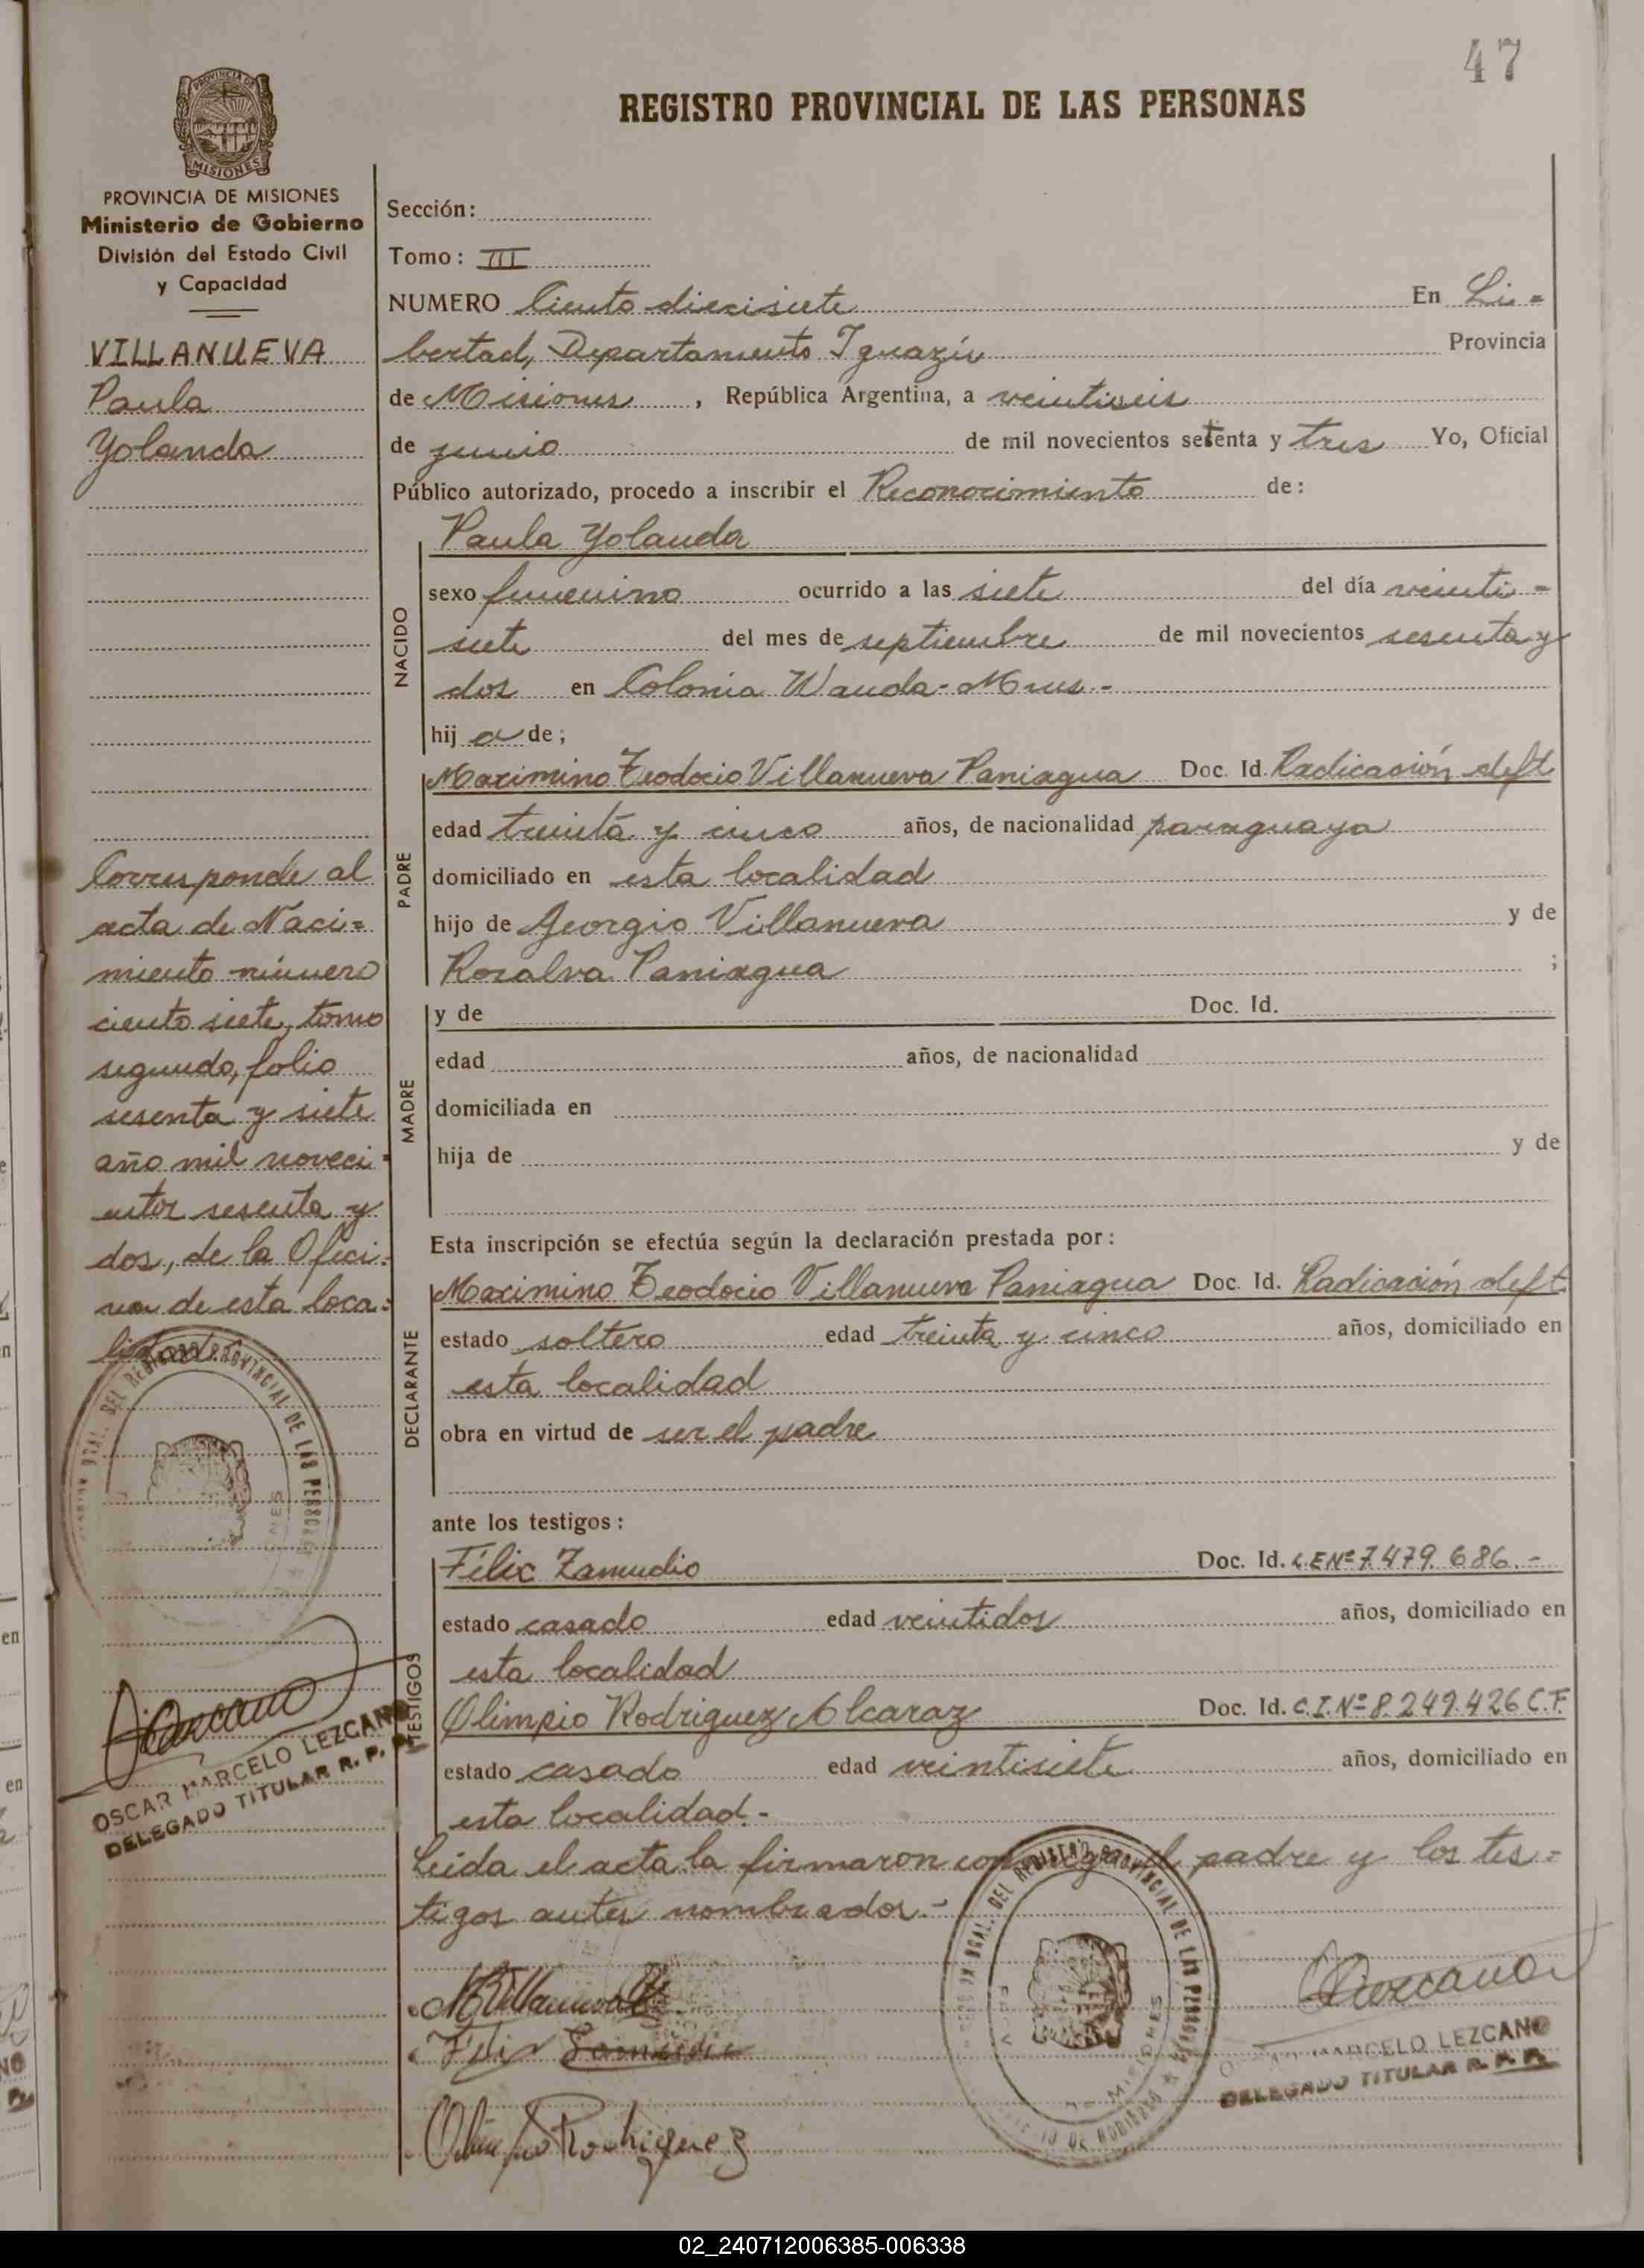 47
REGISTRO PROVINCIAL DE LAS PERSONAS
MISIONES
PROVINCIA DE MISIONES
Ministerio de Gobierno
División del Estado Civil
y Capacidad
VILLANUEVA
Paula
Yolanda
Corresponde al
acta de Naci=
miento número
ciento siete, tomo
segundo, folio
sesenta y siete
año mil noveci-
entos sesenta y
dos, de la Ofici-
na de esta loca=
lidad.-
OSCAR MARCELO LEZCANO
DELEGADO TITULAR R. P. P.
Sección:
Tomo: III
NUMERO Ciento diecisiete En Li=
bertad, Departamento Iguazú Provincia
de Misiones, República Argentina, a veintiseis
de junio de mil novecientos setenta y tres Yo, Oficial
Público autorizado, procedo a inscribir el Reconocimiento de:
NACIDO
Paula Yolanda
sexo femenino ocurrido a las siete del día veinti=
siete del mes de septiembre de mil novecientos sesenta y
dos en Colonia Wanda-Mnes.-
hij a de;
PADRE
Maximino Teodocio Villanueva Paniagua Doc. Id. Radicación deft
edad treinta y cinco años, de nacionalidad paraguaya
domiciliado en esta localidad
hijo de Georgio Villanueva y de
Rosalva Paniagua ;
MADRE
y de Doc. Id.
edad años, de nacionalidad
domiciliada en
hija de y de
Esta inscripción se efectúa según la declaración prestada por:
DECLARANTE
Maximino Teodocio Villanueva Paniagua Doc. Id. Radicación deft.
estado soltero edad treinta y cinco años, domiciliado en
esta localidad
obra en virtud de ser el padre
ante los testigos:
TESTIGOS
Félix Zamudio Doc. Id. L.E Nº 7.479.686.-
estado casado edad veintidos años, domiciliado en
esta localidad
Olimpio Rodriguez Alcaraz Doc. Id. C.I. Nº 8.249.426 C.F.
estado casado edad veintisiete años, domiciliado en
esta localidad.-
Leída el acta la firmaron conmigo el padre y los tes=
tigos antes nombrados.-
DEL REGISTRO PROVINCIAL DE LAS PERSONAS
MISIONES
Felix Zamudio
Olimpio Rodriguez
OSCAR MARCELO LEZCANO
DELEGADO TITULAR R. P. P.
02_240712006385-006338